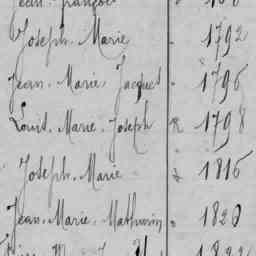 Joseph. Marie - 1792
Jean. Marie. Jacques - 1796
Louis. Marie. Joseph R 1798
Joseph. Marie 1816
Jean. Marie. Mathurin 1820